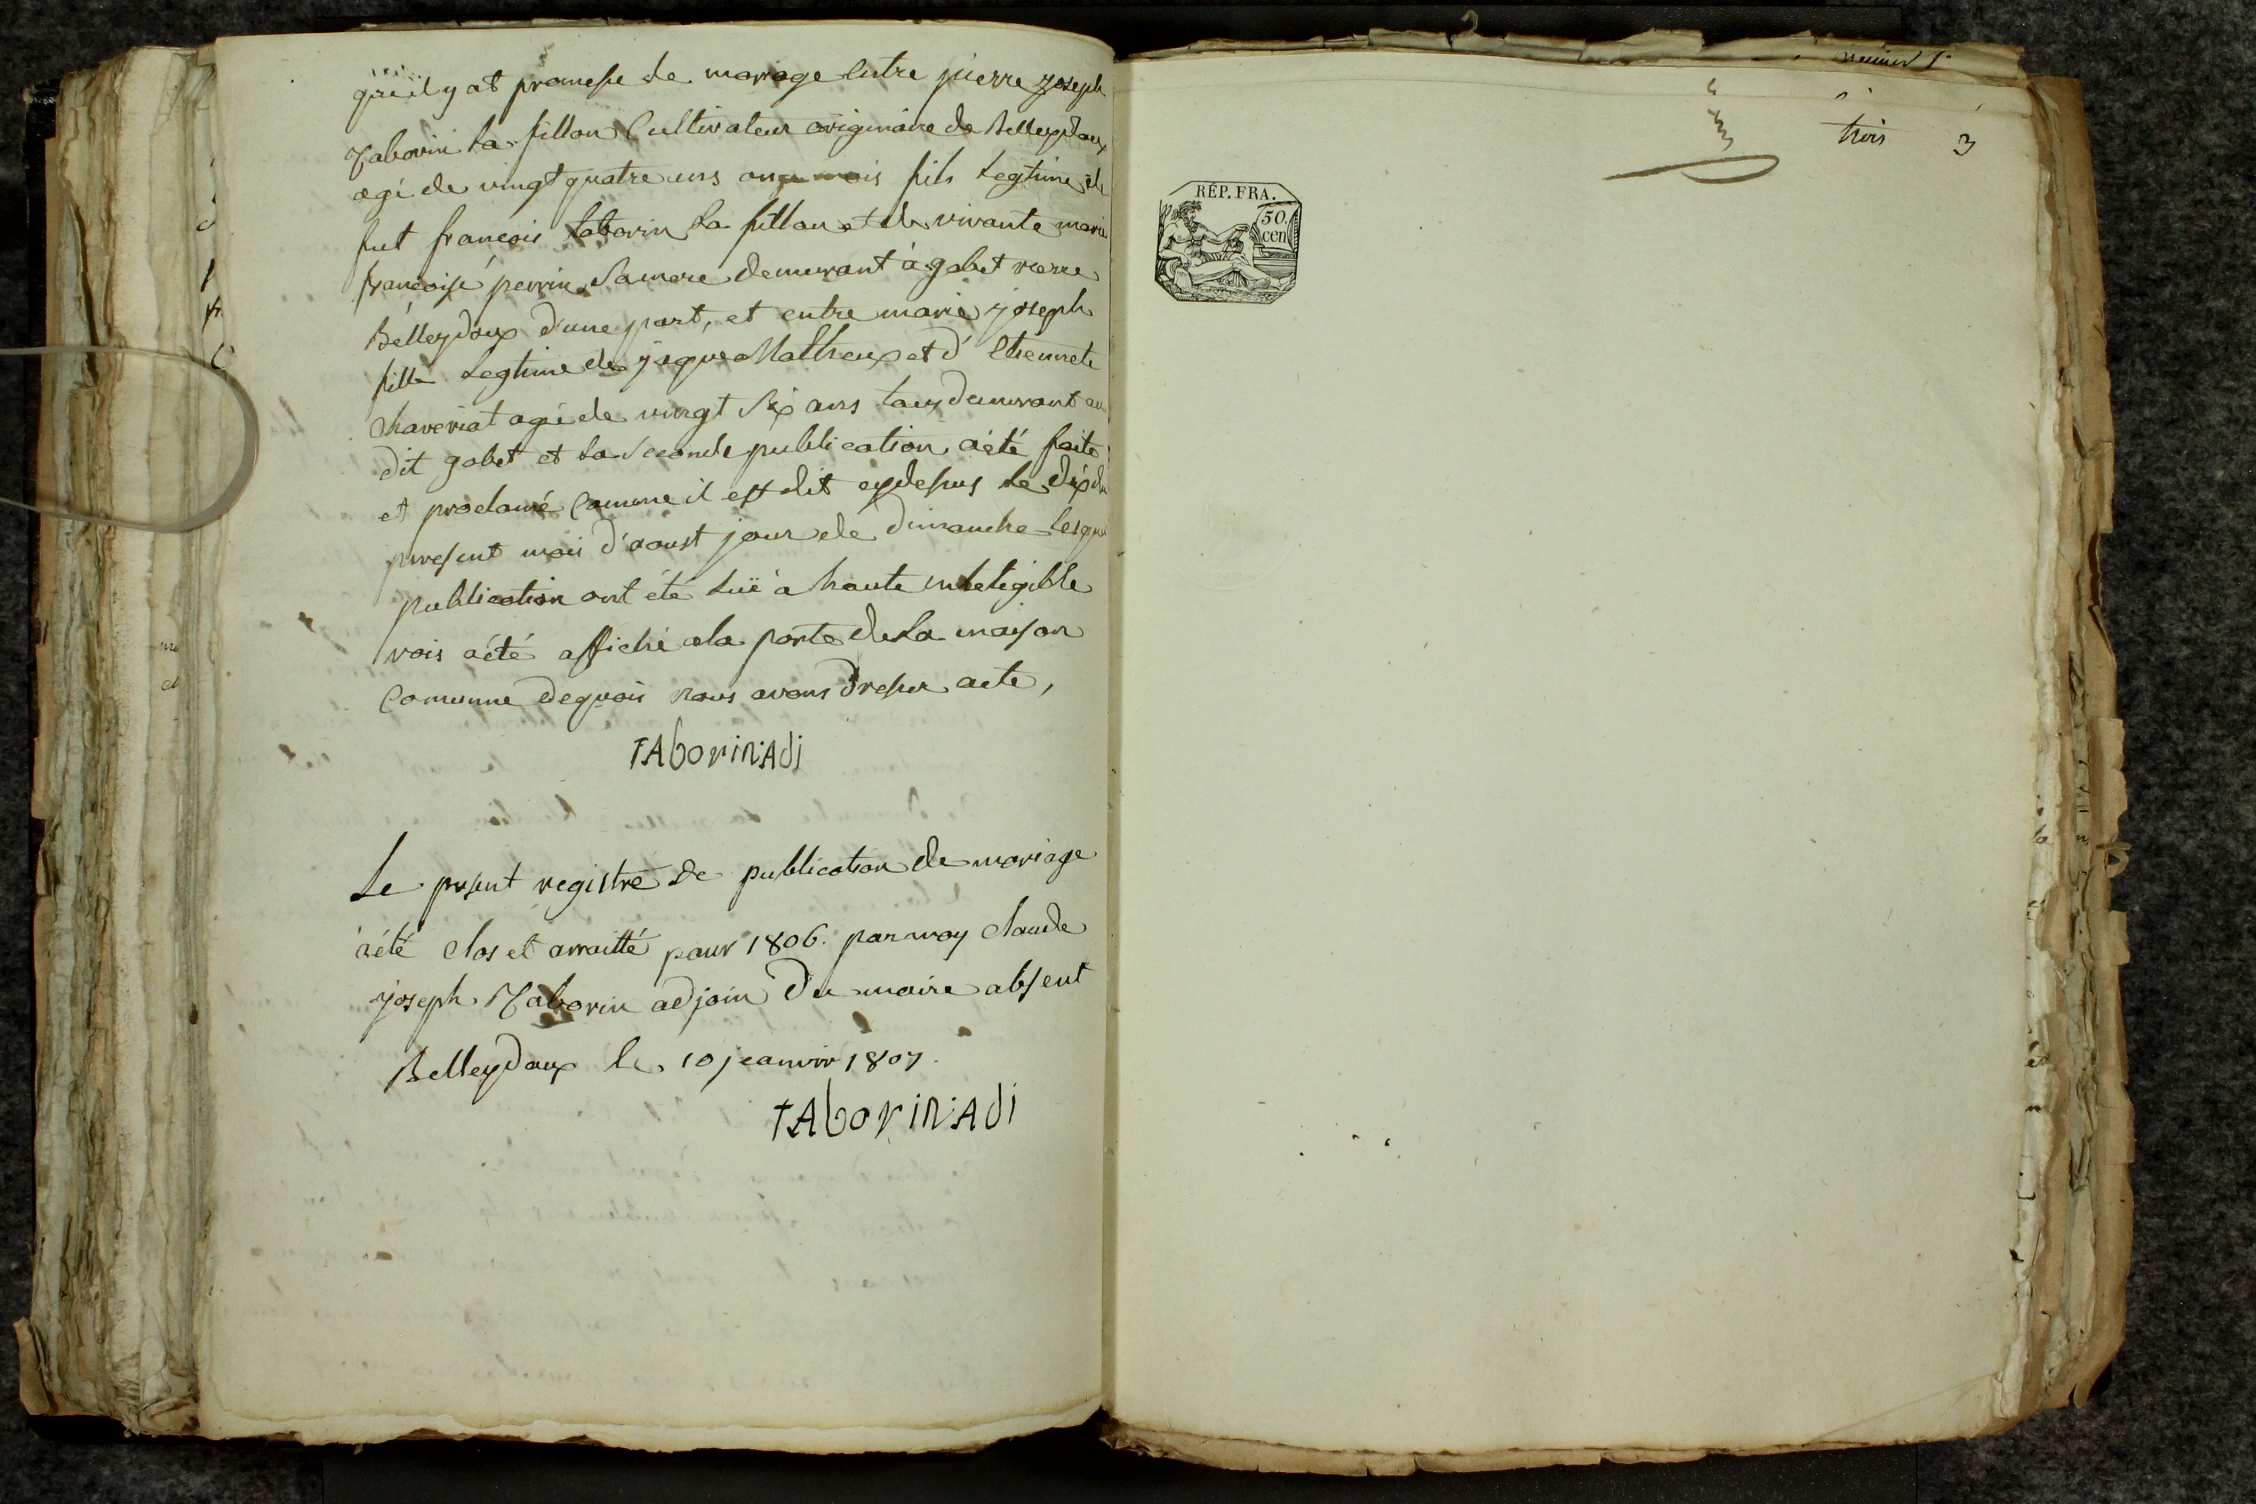 qu'il y at promesse de mariage Entre pierre joseph
Taborin la fillon Cultivateur originaire de Belleydoux
agé de vingt quatre ans onze mois fils Legtime de
fut françois taborin La fillon et de vivante marie
françoise perrin Sa mere demurant à gobet
Belleydoux d'une part, et entre marie joseph
fille Legtime de jaque Mathieux et d'Etiennete
Chaveriat agé de vingt Six ans demurant au
dit gobet et La seconde publication a été faite
et proclamé Comme il est dit cydessus Le dix du
present mois d'aoust jour de dimanche
publication ont été Luë à haute inteligible
vois a été affiché a la porte de La maison
Comunne dequois nous avons dresser acte,
TAborin:Adj
Le present registre de publication de mariage
a été Clos et arraitté pour 1806. par moy Claude
joseph Taborin adjoin Du maire absent
Belleydoux le 10 jeanvir 1807.
TAborin:Adj
trois 3
RÉP. FRA.
50.
cen